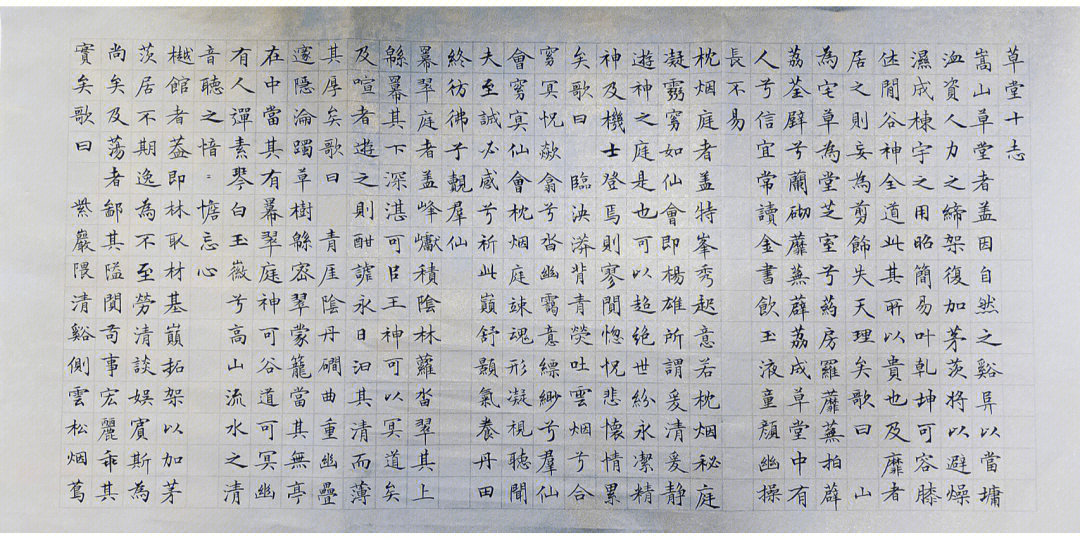 草堂十志
嵩山草堂者盖因自然之谿阜以當墉
洫資人力之締架復加茅茨將以避燥
濕成棟宇之用昭簡易叶乾坤可容膝
休閒谷神全道此其所以貴也及靡者
居之則妄為剪飾失天理矣歌曰 山
為宅草為堂芝室兮药房羅蘼蕪拍薜
荔荃壁兮蘭砌蘼蕪薜荔成草堂中有
人兮信宜常讀金書飲玉液童顏幽操
長不易
枕烟庭者盖特峯秀起意若枕烟秘庭
凝霭窅如仙會即楊雄所謂爰清爰静
遊神之庭是也可以超絕世紛永潔精
神及機士登焉則寥閴惚怳悲懷情累
矣歌曰 臨泱漭背青熒吐雲烟兮合
窅冥怳欻翕兮沓幽靄意縹緲兮羣仙
會窅冥仙會枕烟庭竦魂形凝視聽聞
夫至誠必感兮祈此巔舒顥氣養丹田
終彷彿兮覯羣仙
冪翠庭者盖峰巘積陰林蘿沓翠其上
緜冪其下深湛可㠯王神可以冥道矣
及喧者遊之則酣謔永日汩其清而薄
其厚矣歌曰 青厓陰丹磵曲重幽疊
邃隱淪躅草樹緜密翠蒙籠當其無亭
在中當其有冪翠庭神可谷道可冥幽
有人彈素琴白玉徽兮高山流水之清
音聽之愔=憺忘心
樾館者葢即林取材基巔拓架以加茅
茨居不期逸為不至勞清談娛賓斯為
尚矣及蕩者鄙其隘閴苟事宏麗乖其
實矣歌曰 紫巖隈清谿側雲松烟蔦